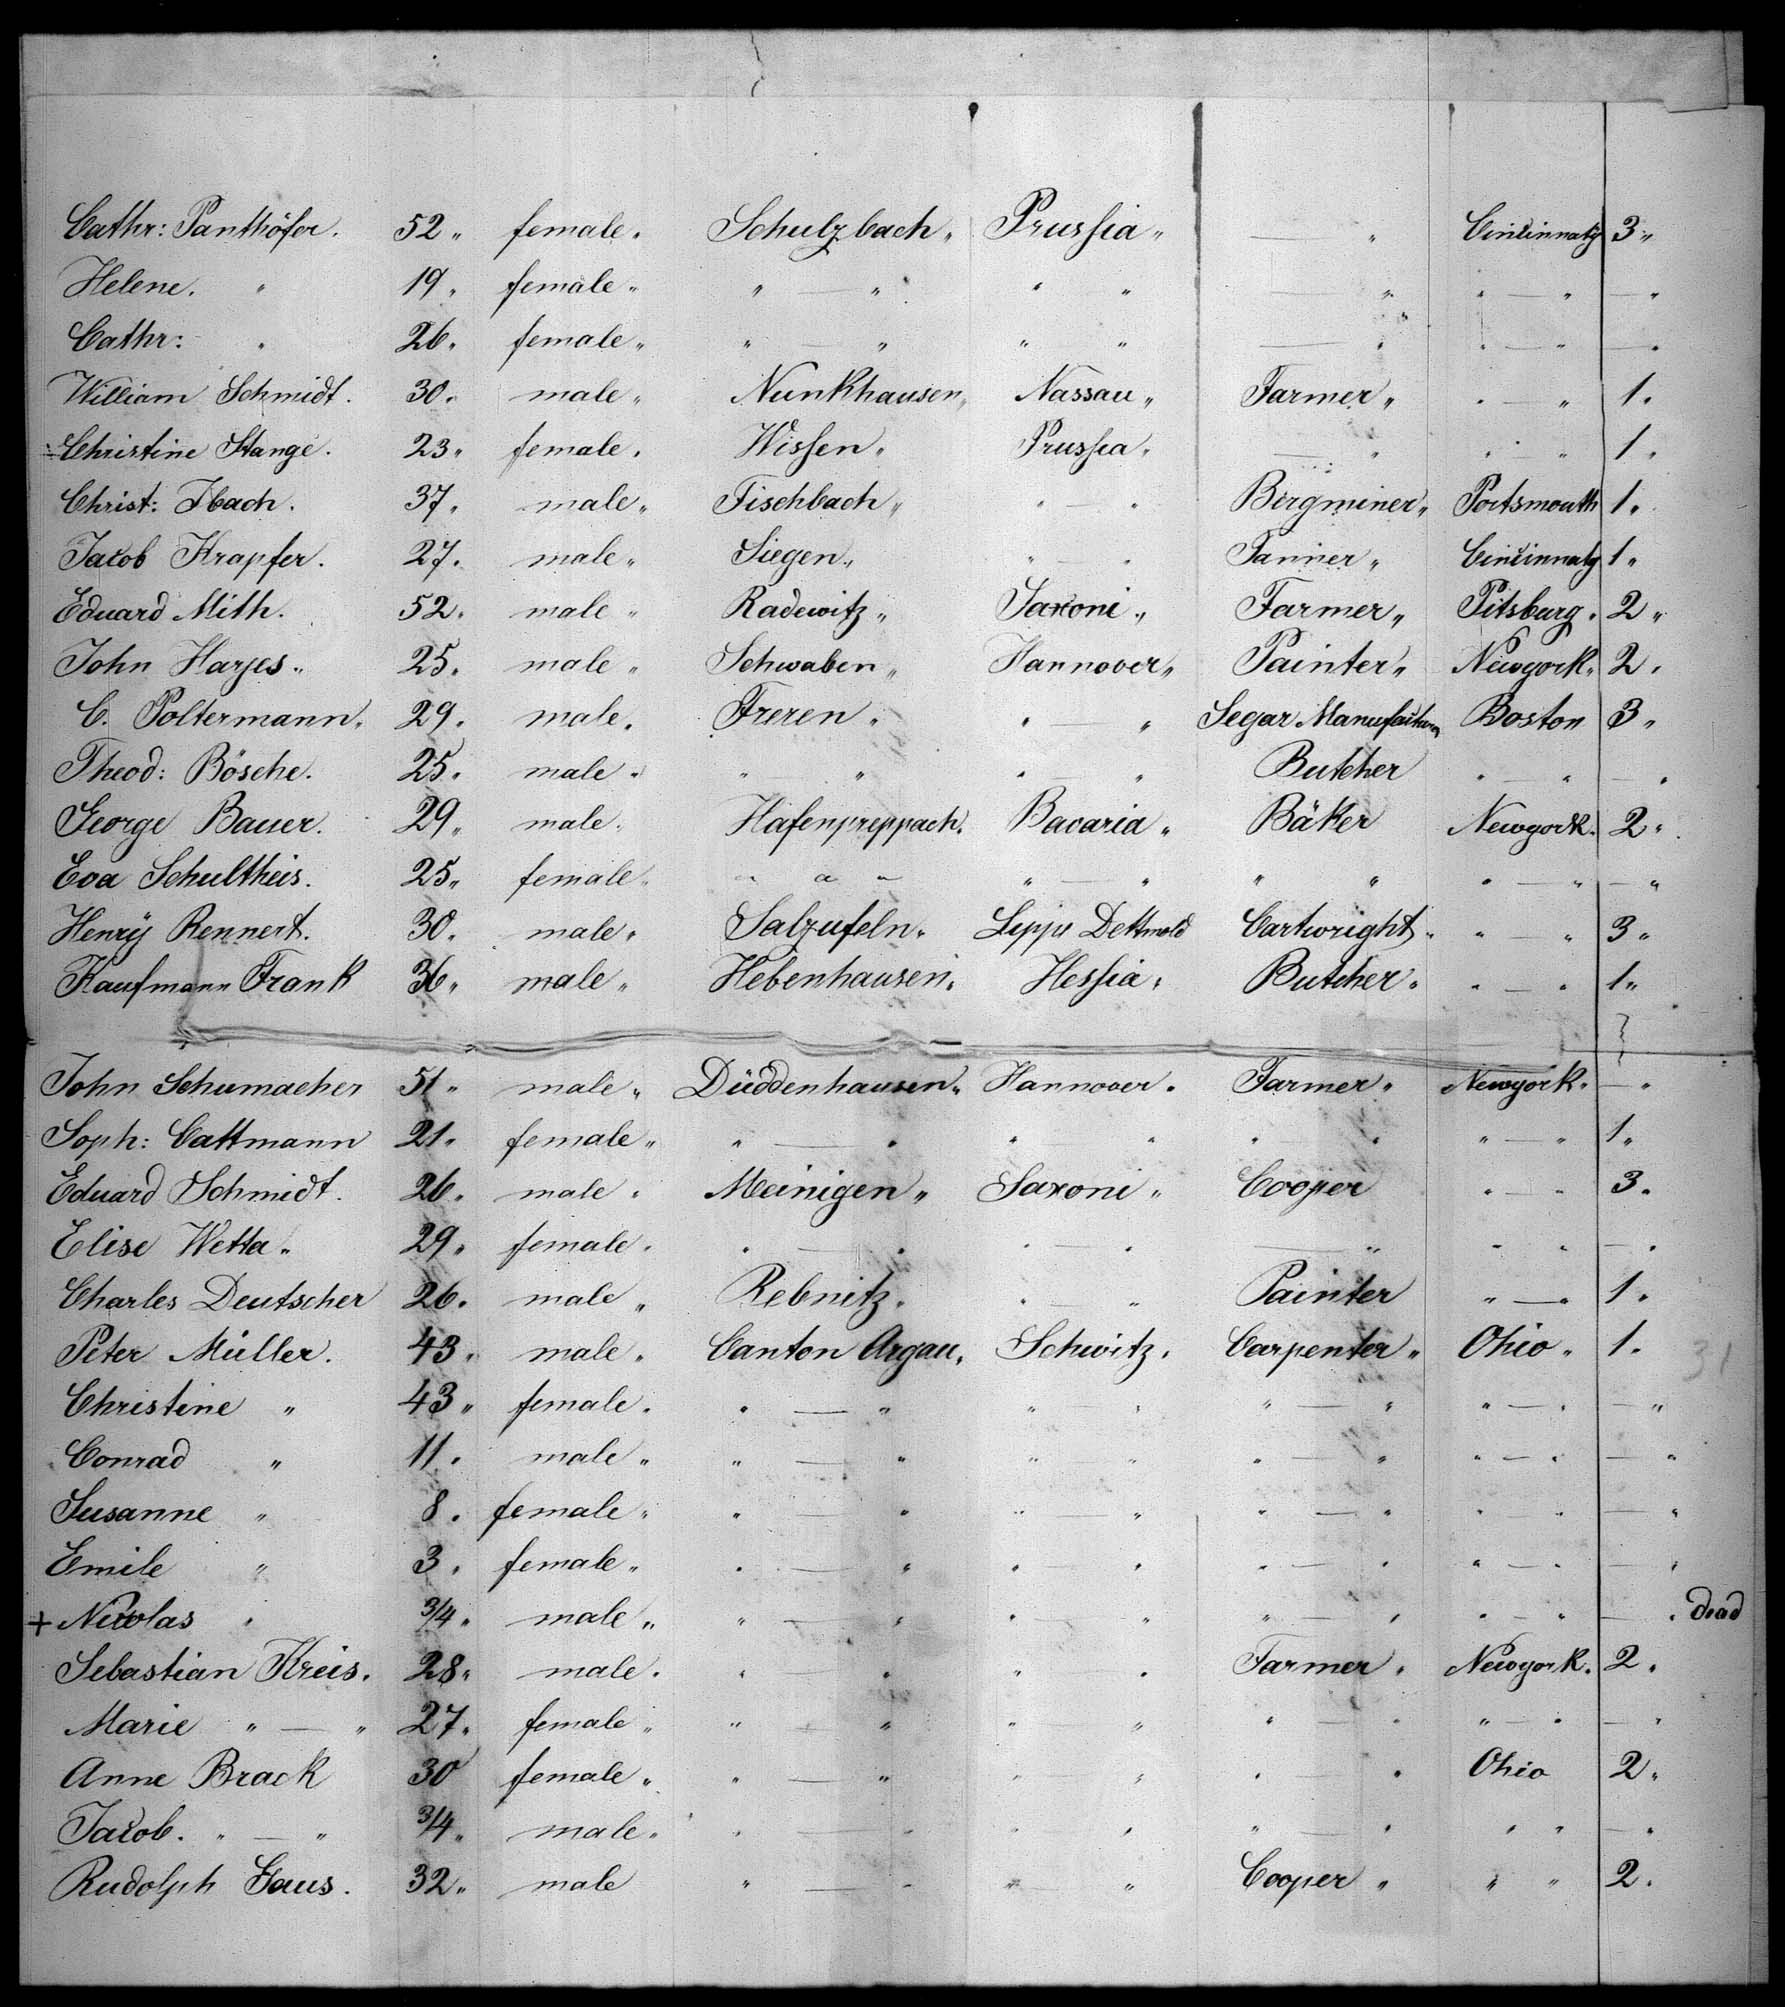 Cathr: Panthöfer. 52 " female " Schulzbach " Prussia " — " Cincinnaty 3 "
Helene. " 19 " female " " " " " — " " — " — "
Cathr: " 26 " female " " — " " " — " " — " — "
William Schmidt. 30 " male " Nunkhausen " Nassau " Farmer " " — " 1 "
Christine Stange. 23 " female " Wissen " Prussia " — " " — " 1 "
Christ: Ibach. 37 " male " Fischbach " " — " Bergminer " Portsmouth 1 "
Jacob Krapfer. 27 " male " Siegen " " — " Tanner " Cincinnaty 1 "
Eduard Mith. 52 " male " Radewitz " Saxoni " Farmer " Pitsburg " 2 "
John Harjes " 25 " male " Schwaben " Hannover " Painter " Newyork " 2 "
C. Poltermann " 29 " male " Freren " " — " Segar Manufactur Boston 3 "
Theod: Bösche. 25 " male " " — " " — " Butcher " — " — "
George Bauer. 29 " male " Hafenpreppach " Bavaria " Bäker Newyork " 2 "
Eva Schultheis. 25 " female " " " " " — " " " " — " — "
Henry Rennert. 30 " male " Salzufeln " Lippe Dettmold Cartwright " " — " 3 "
Kaufmann Frank 36 " male " Hebenhausen " Hessia " Butcher " " — " 1 "
John Schumacher 51 " male " Düddenhausen " Hannover " Farmer " Newyork " — "
Soph: Cattmann 21 " female " " — " " " " " " — " 1 "
Eduard Schmidt. 26 " male " Meinigen " Saxoni " Cooper " — " 3 "
Elise Wetta " 29 " female " " — " " — " — " " " — "
Charles Deutscher 26 " male " Rebnitz " " — " Painter " — " 1 "
Peter Müller. 43 " male " Canton Argau " Schwitz " Carpenter " Ohio " 1 "
31
Christine " 43 " female " " — " " — " " — " " — " — "
Conrad " 11 " male " " — " " — " " — " " — " — "
Susanne " 8 " female " " — " " — " " — " " — " — "
Emile " 3 " female " " — " " — " " — " " — " — "
+ Nicolas " 3/4 " male " " — " " — " " — " " — " — " dead
Sebastian Kreis. 28 " male " " — " " — " Farmer " Newyork " 2 "
Marie " — " 27 " female " " — " " — " " — " " — " — "
Anne Brack 30 female " " — " " — " " — " Ohio 2 "
Jacob. " — " 3/4 " male " " — " " — " " — " " " — "
Rudolph Haus. 32 " male " — " " — " Cooper " " " 2 "